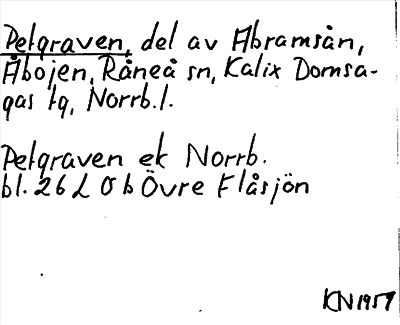 Pelgraven, del av Abramsån,
Åbojen, Råneå sn, Kalix Domsa-
gas tg, Norrb.l.
Pelgraven ek Norrb.
bl. 26 L 0 b Övre Flåsjön
KN 1957